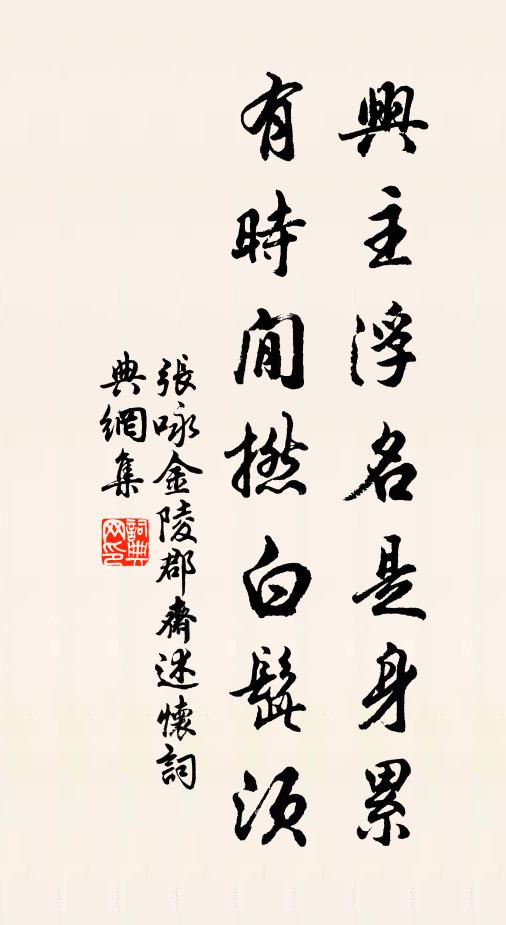 興主浮名是身累
有時閒撚白髭須
張咏金陵郡齋述懷詞
典網集
詞典网印